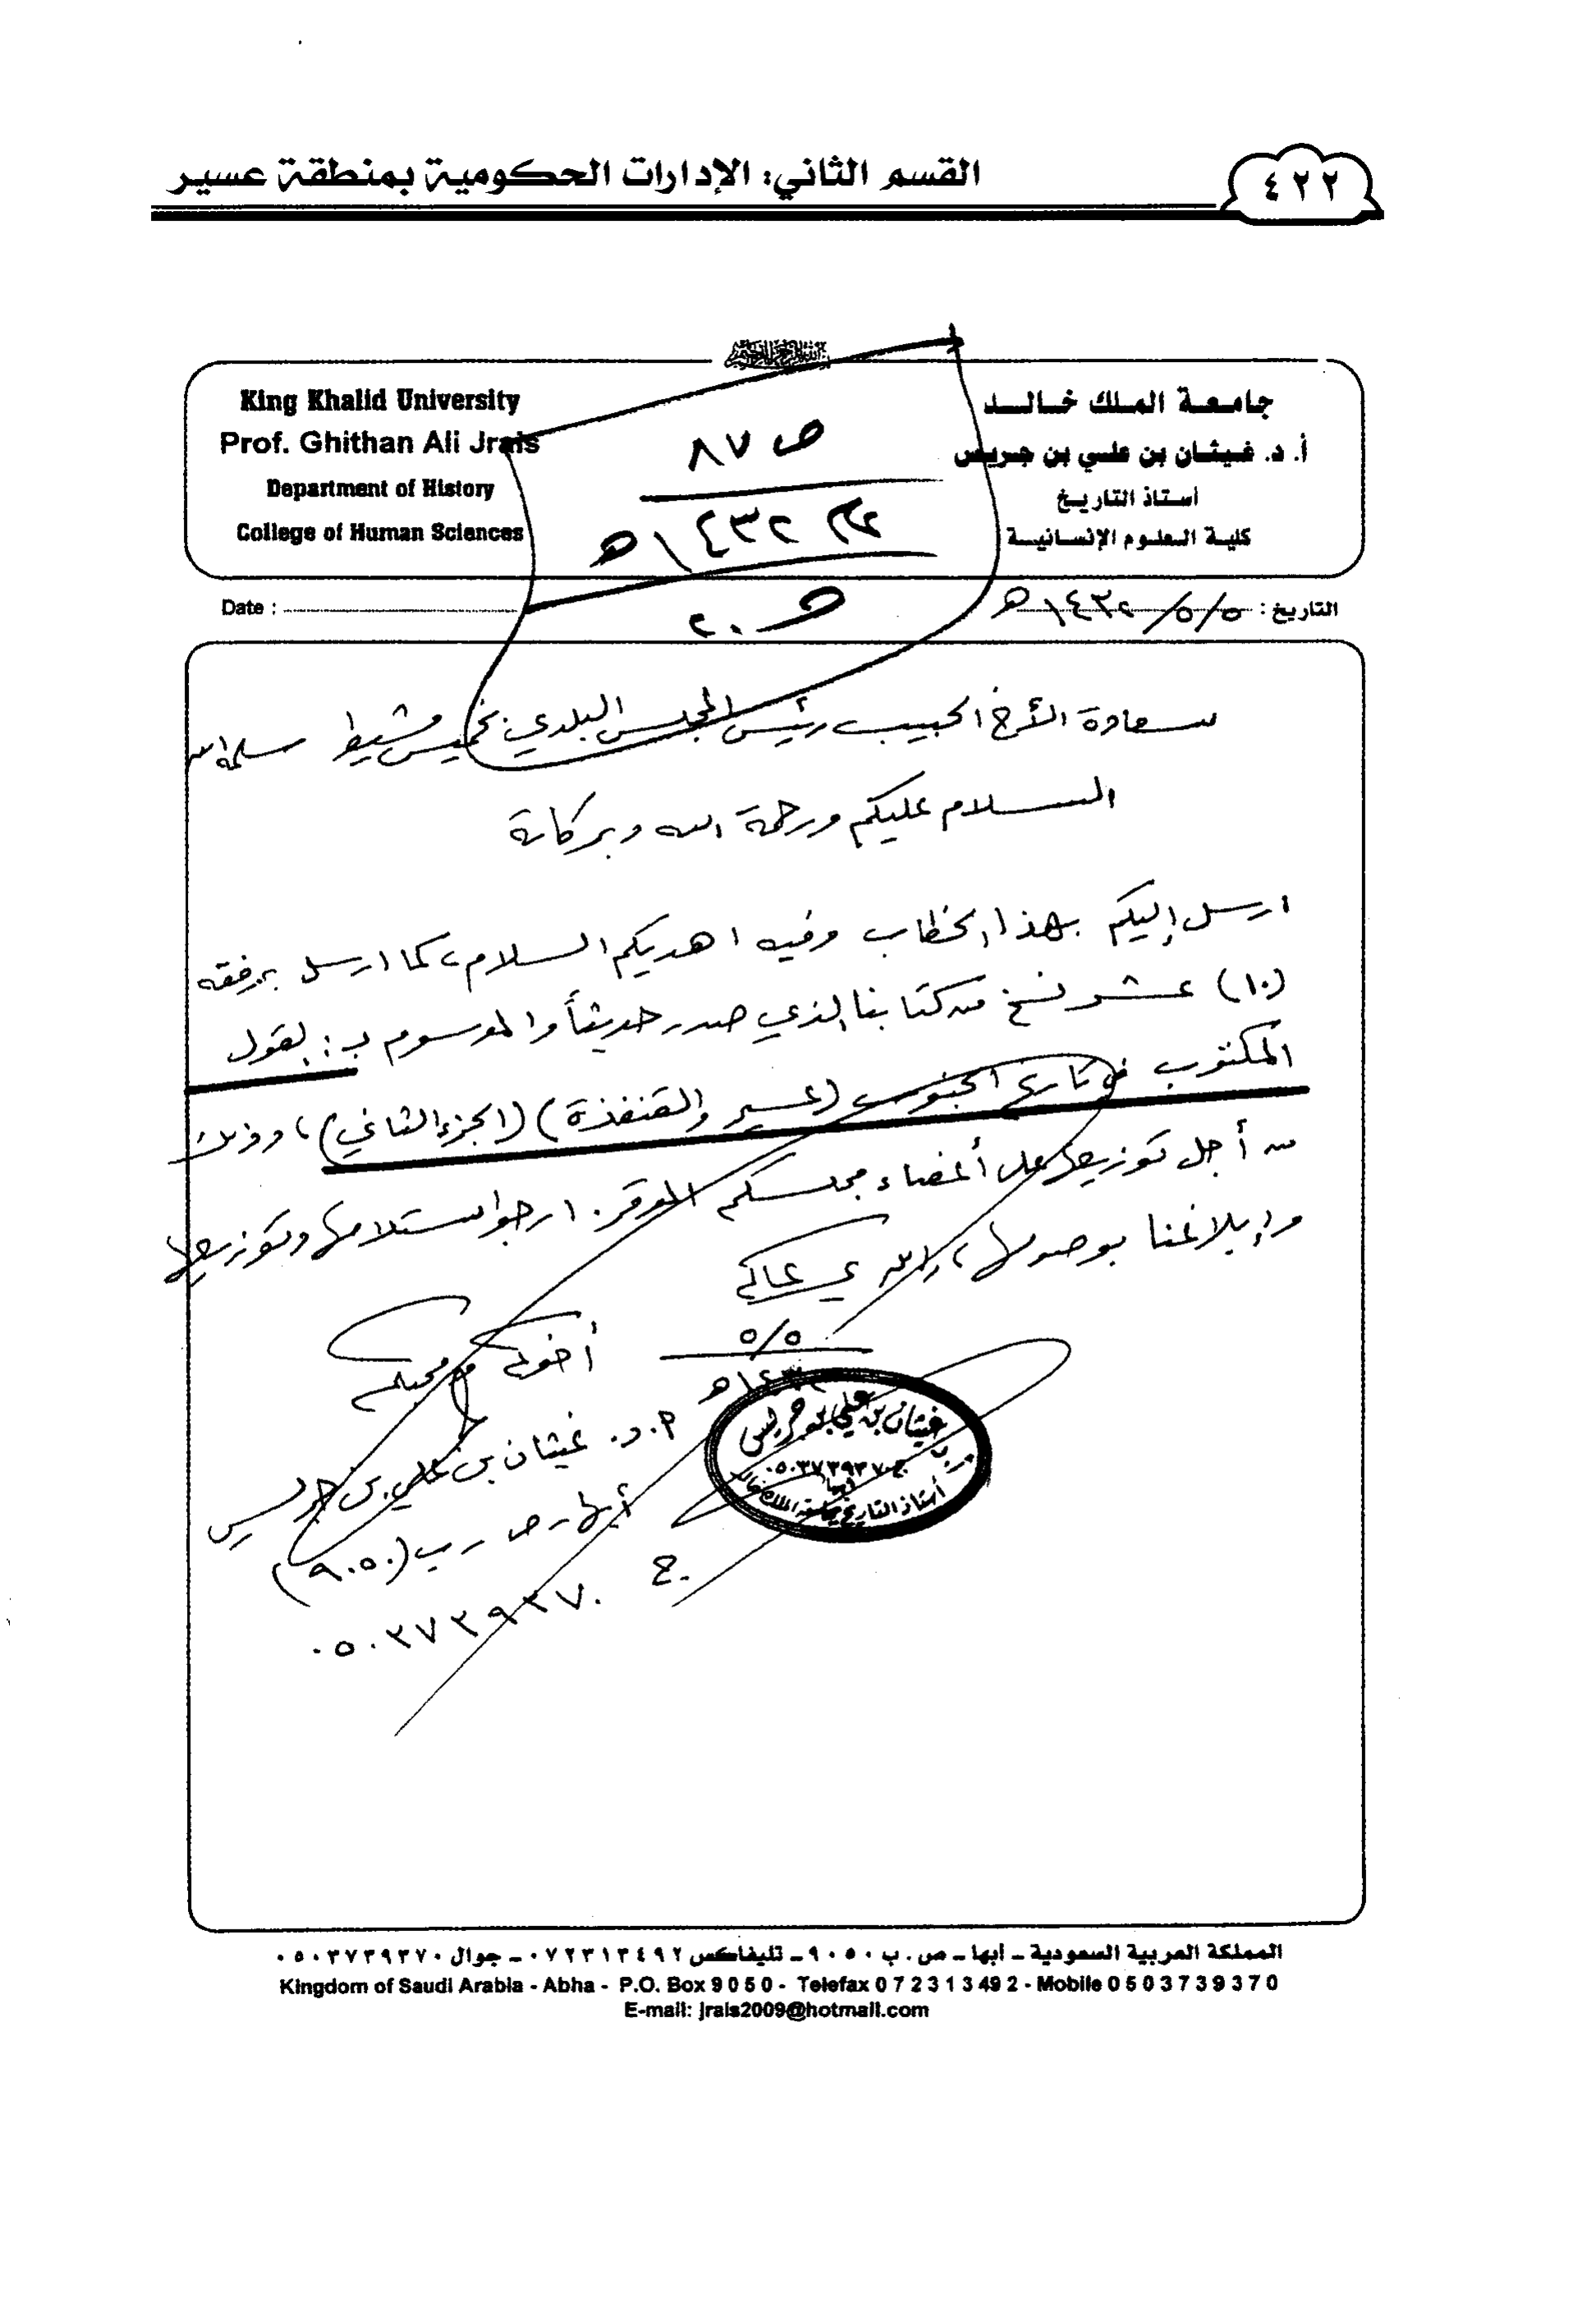 ٤٢٢
القسم الثاني: الإدارات الحكومية بمنطقة عسير
جامعة الملك خالد
أ. د. غيثان بن علي بن جريس
أستاذ التاريخ
كلية العلوم الإنسانية
King Khalid University
Prof. Ghithan Ali Jrais
Department of History
College of Human Sciences
ص ٨٧
عام ١٤٣٢هـ
التاريخ: ٥/٥/١٤٣٢هـ
Date :
سعادة الأخ الحبيب رئيس المجلس البلدي بخميس مشيط سلمه الله
السلام عليكم ورحمة الله وبركاته
ارسل إليكم بهذا الخطاب وفيه اهديكم السلام، كما ارسل برفقه
(١٠) عشر نسخ من كتابنا الذي صدر حديثاً والموسوم بـ: القول
المكتوب في تاريخ الجنوب (عسير والقنفذة) (الجزء الثاني)، وذلك
من أجل توزيعها على أعضاء مجلسكم الموقر. ارجوا استلامها وتوزيعها
وإبلاغنا بوصولها، والله يرعاكم
٥/٥
١٤٣٢هـ
أخوكم ومحبكم
أ.د. غيثان بن علي بن جريس
أبها - ص - ب (٩٠٥٠)
ج ٠٥٠٣٧٣٩٣٧٠
غيثان بن علي بن جريس
ج ٠٥٠٣٧٣٩٣٧٠
أبها
أستاذ التاريخ بجامعة الملك خالد
المملكة العربية السعودية - أبها - ص. ب ٩٠٥٠ - تليفاكس ٠٧٢٣١٣٤٩٢ - جوال ٠٥٠٣٧٣٩٣٧٠
Kingdom of Saudi Arabia - Abha - P.O. Box 9050 - Telefax 072313492 - Mobile 0503739370
E-mail: jrais2009@hotmail.com